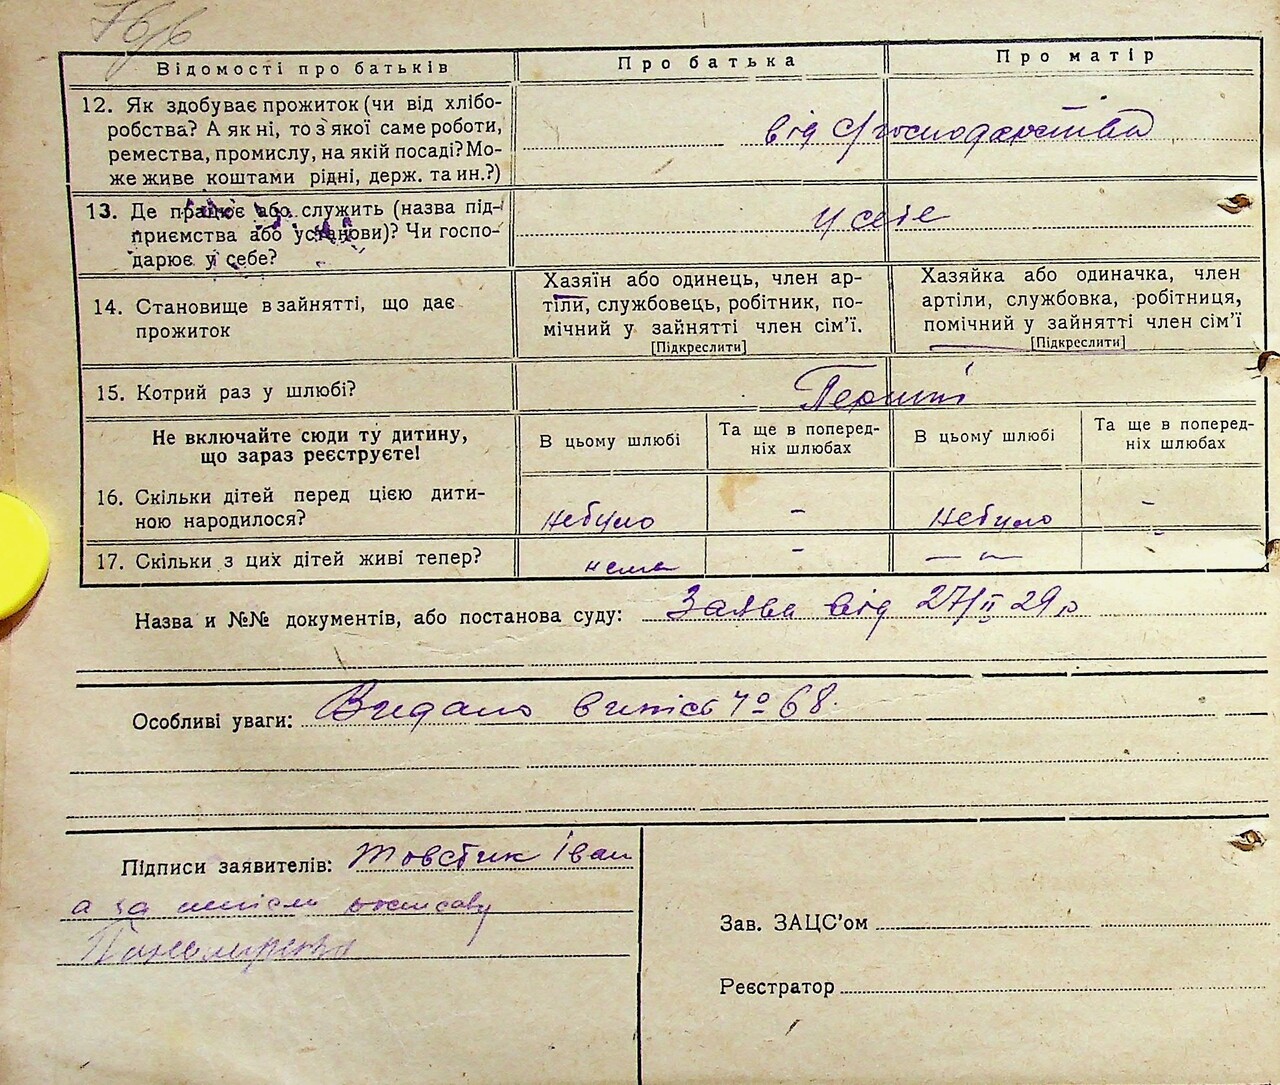 Відомості про батьків
Про батька
Про матір
12. Як здобуває прожиток (чи від хлібо-
робства? А як ні, то з якої саме роботи,
ремества, промислу, на якій посаді? Мо-
же живе коштами рідні, держ. та ин.?)
від с/господарства
13. Де працює або служить (назва під-
приємства або установи)? Чи госпо-
дарює у себе?
у себе
14. Становище в зайнятті, що дає
прожиток
Хазяїн або одинець, член ар-
тіли, службовець, робітник, по-
мічний у зайнятті член сім’ї.
[Підкреслити]
Хазяйка або одиначка, член
артіли, службовка, робітниця,
помічний у зайнятті член сім’ї
[Підкреслити]
15. Котрий раз у шлюбі?
Перший
Не включайте сюди ту дитину,
що зараз реєструєте!
В цьому шлюбі
Та ще в поперед-
ніх шлюбах
В цьому шлюбі
Та ще в поперед-
ніх шлюбах
16. Скільки дітей перед цією дити-
ною народилося?
небуло - небуло -
17. Скільки з цих дітей живі тепер?
нема - — " — -
Назва и №№ документів, або постанова суду: Заява від 27/II 29 р
Особливі уваги: Видано випіс № 68.
Підписи заявителів: Товстик Іван
а за
Зав. ЗАЦС’ом
Реєстратор